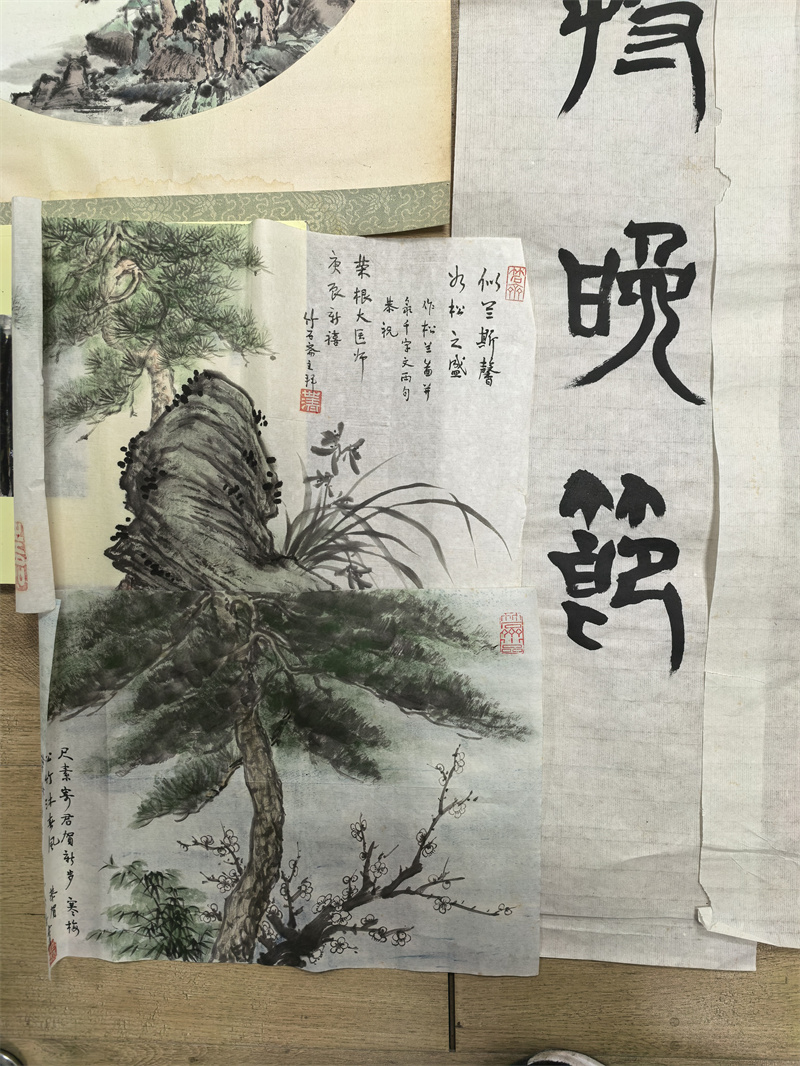 晚
節
似兰斯馨
如松之盛
作松兰画并
录千字文两句
恭祝
荣根大医师
庚辰新禧
竹石斋主拜
尺素寄君贺新岁 寒梅
松竹沐春风 恭贺